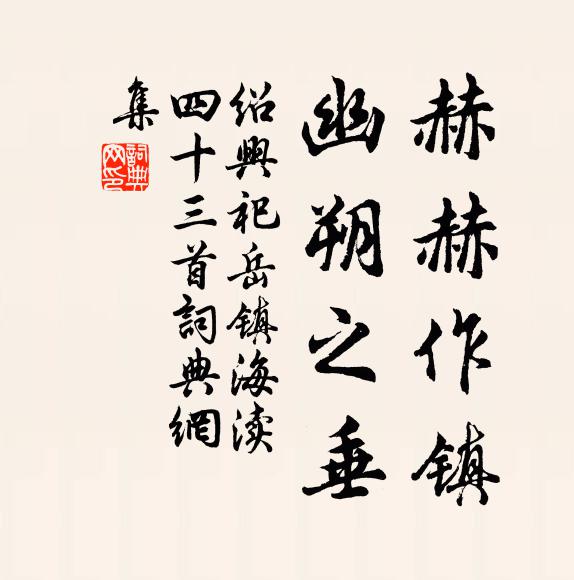 赫赫作镇
幽朔之垂
绍興祀岳镇海渎
四十三首詞典網
集
詞典网印